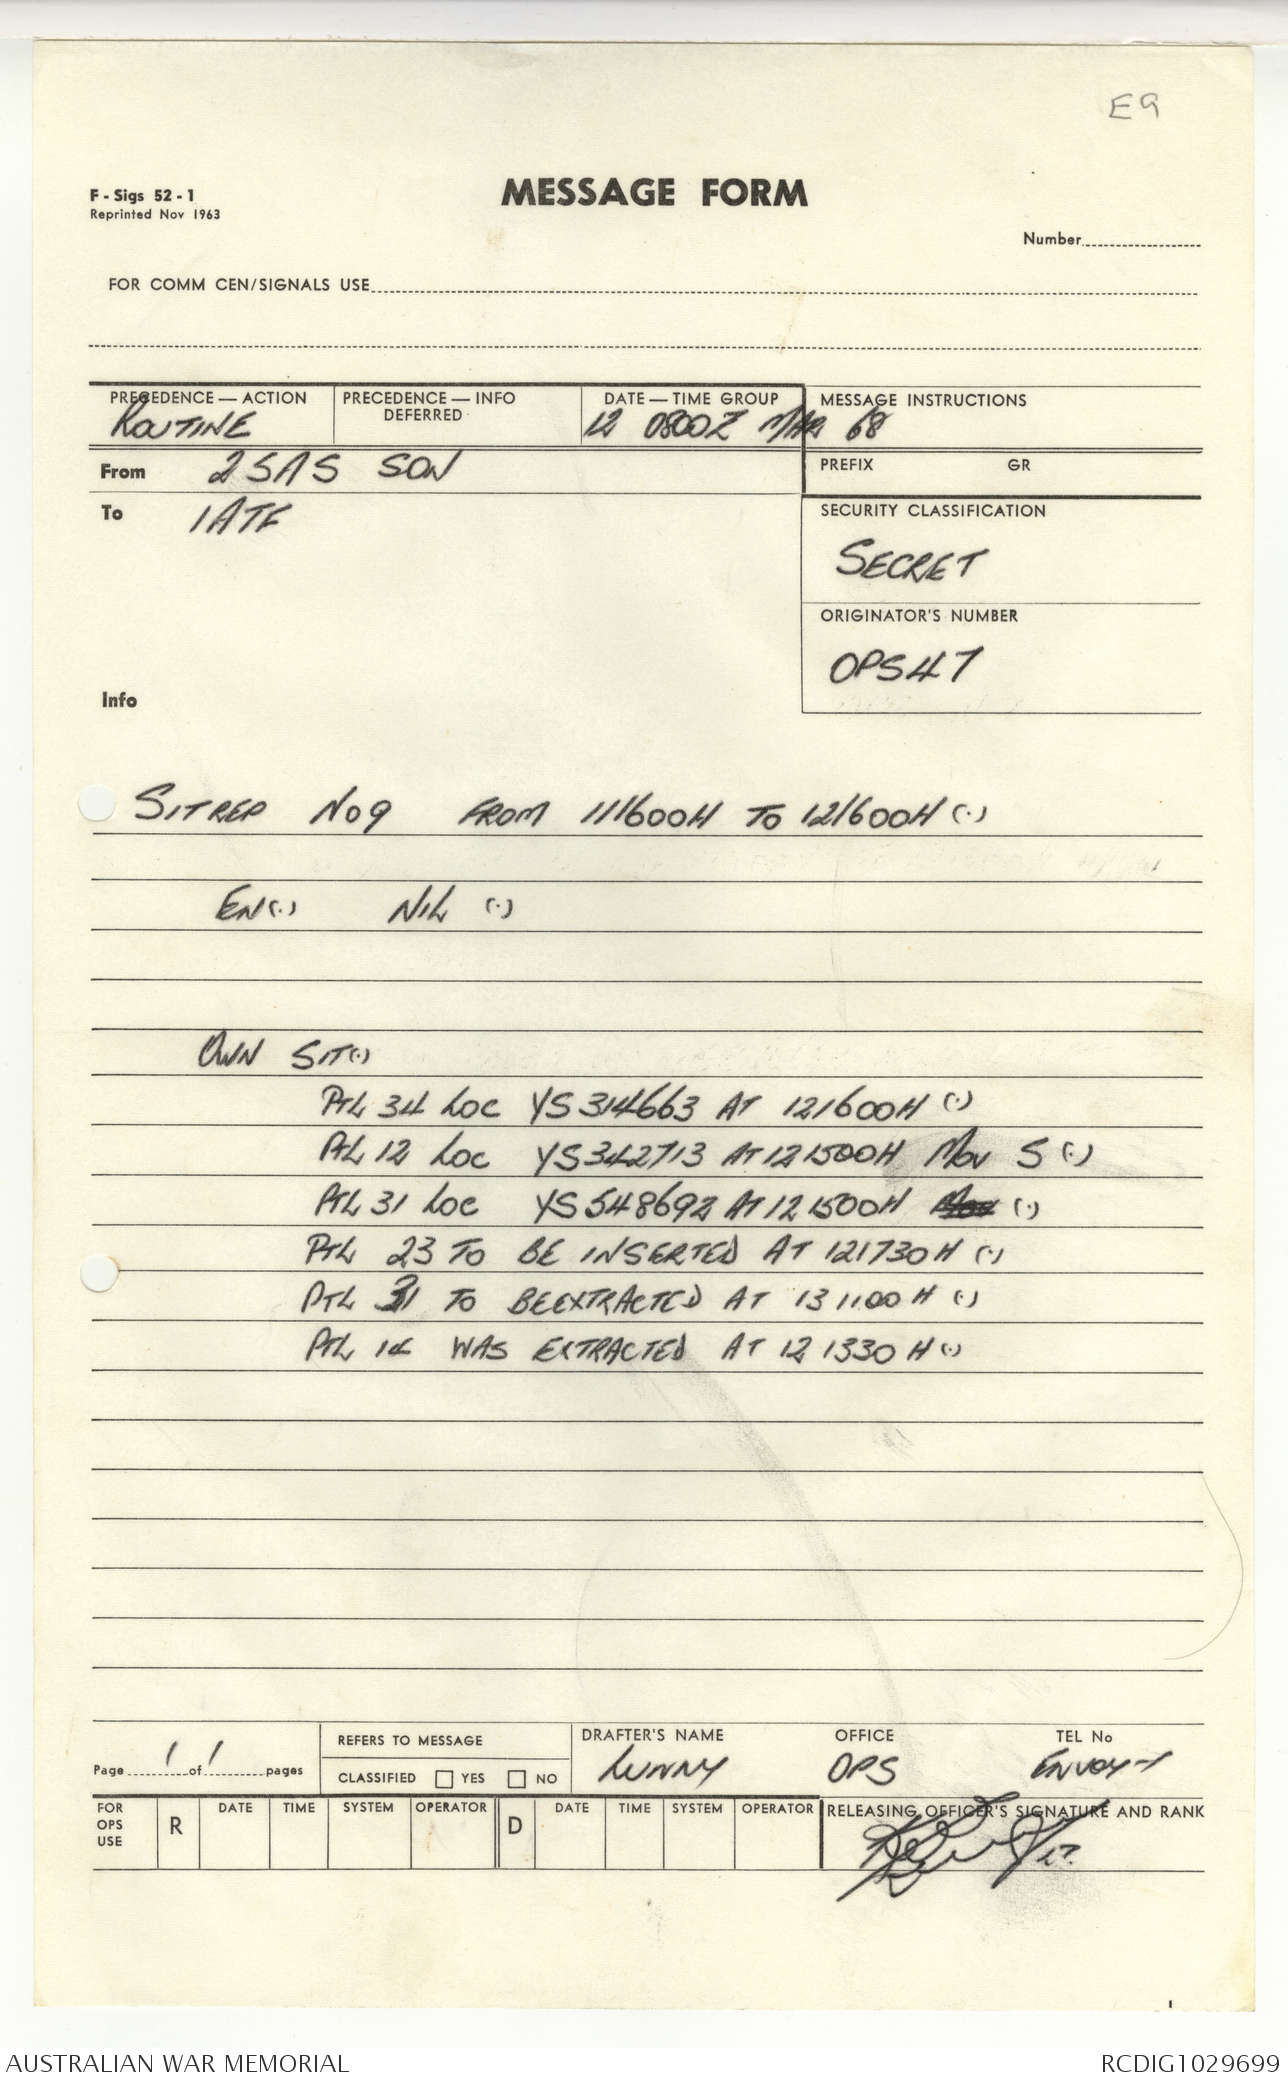 E9
F - Sigs 52 - 1
Reprinted Nov 1963
MESSAGE FORM
Number
FOR COMM CEN/SIGNALS USE
PRECEDENCE — ACTION
ROUTINE
PRECEDENCE — INFO
DEFERRED
DATE — TIME GROUP
12 0800Z MAR 68
MESSAGE INSTRUCTIONS
From 2 SAS SQN
PREFIX GR
To 1ATF
SECURITY CLASSIFICATION
SECRET
ORIGINATOR'S NUMBER
OPS 47
Info
SITREP No 9 FROM 111600H TO 121600H (.)
EN(.) NIL (.)
OWN SIT(.)
PTL 34 LOC YS 314663 AT 121600H (.)
PTL 12 LOC YS 342713 AT 121500H MOV S (.)
PTL 31 LOC YS 548692 AT 121500H (.)
PTL 23 TO BE INSERTED AT 121730H (.)
PTL 31 TO BE EXTRACTED AT 131100H (.)
PTL 14 WAS EXTRACTED AT 121330H (.)
Page 1 of 1 pages
REFERS TO MESSAGE
CLASSIFIED YES NO
DRAFTER'S NAME
LUNNY
OFFICE
OPS
TEL No
ENVOY-1
FOR
OPS
USE
R DATE TIME SYSTEM OPERATOR D DATE TIME SYSTEM OPERATOR
RELEASING OFFICER'S SIGNATURE AND RANK
LT.
AUSTRALIAN WAR MEMORIAL
RCDIG1029699